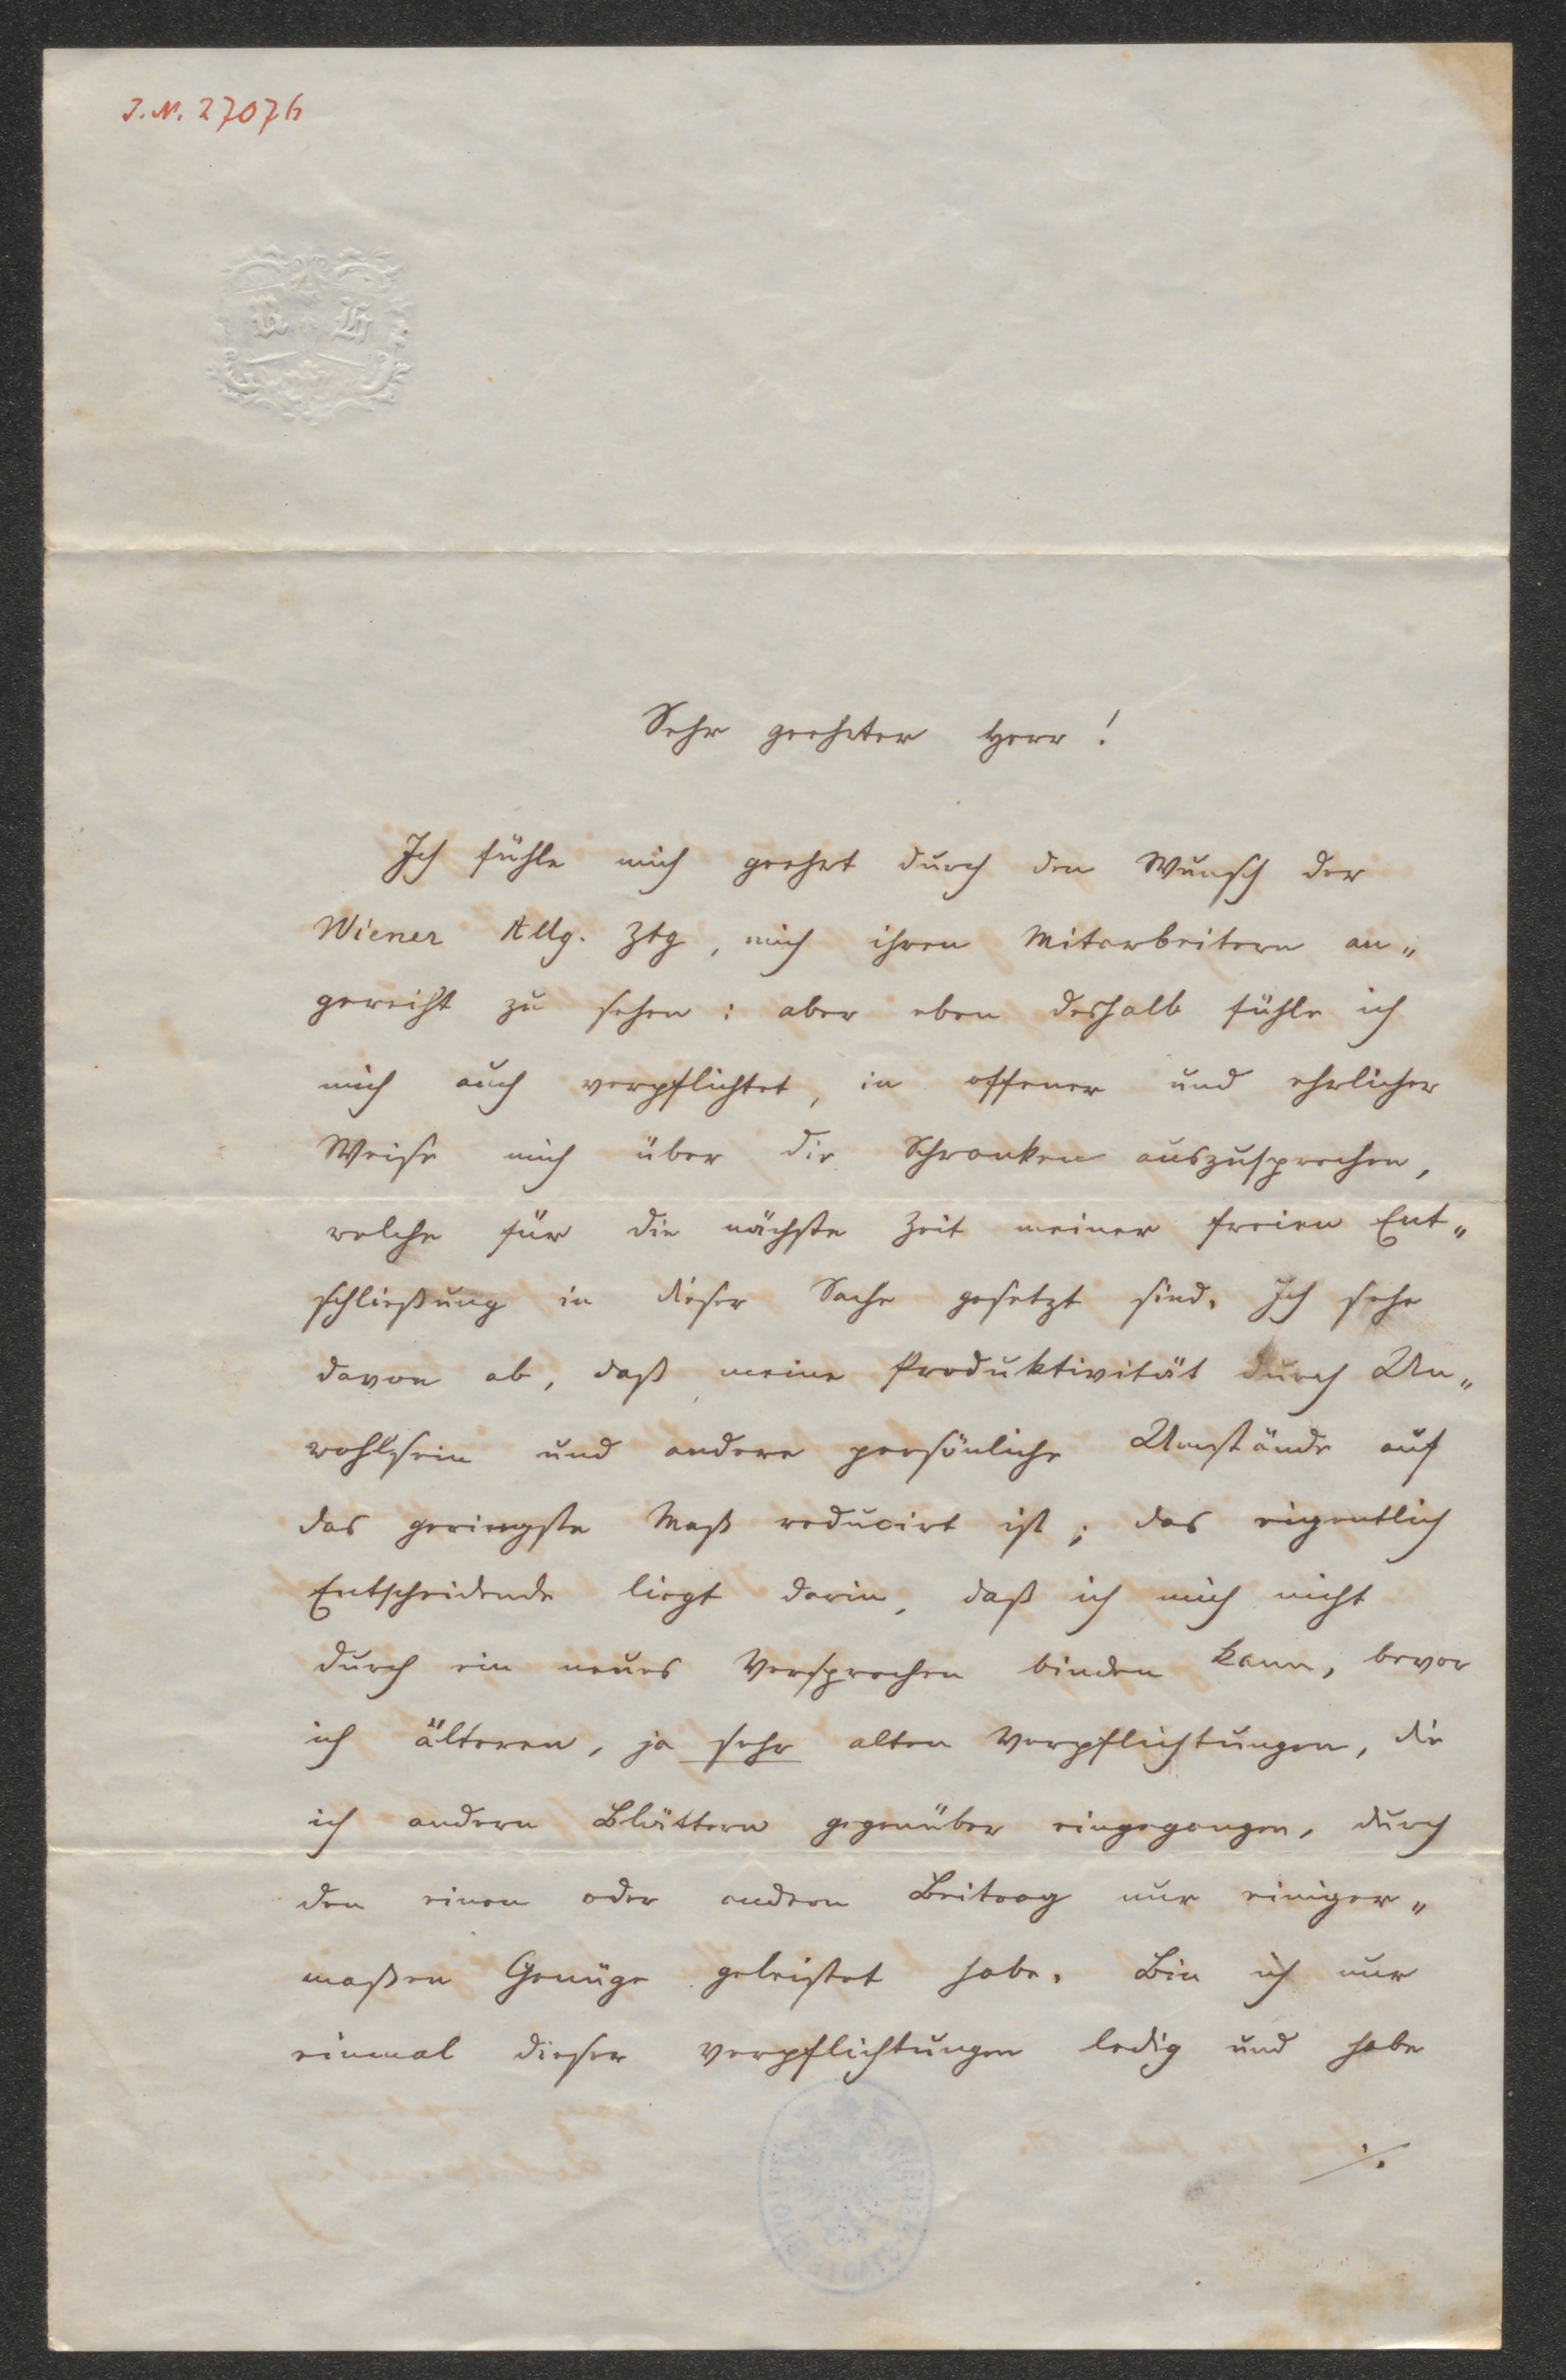 J. N. 27076
R H
Sehr geehrter Herr!
Ich fühle mich geehrt durch den Wunsch der
Wiener Allg. Ztg, mich ihren Mitarbeitern an„
gereiht zu sehen: aber eben deshalb fühle ich
mich auch verpflichtet, in offener und ehrlicher
Weise mich über die Schranken auszusprechen,
welche für die nächste Zeit meiner freien Ent„
schließung in dieser Sache gesetzt sind. Ich sehe
davon ab, daß meine Produktivität durch Un„
wohlsein und andere persönliche Umstände auf
das geringste Maß reducirt ist; das eigentlich
Entscheidende liegt darin, daß ich mich nicht
durch ein neues Versprechen binden kann, bevor
ich älteren, ja sehr alten Verpflichtungen, die
ich andern Blättern gegenüber eingegangen, durch
den einen oder andern Beitrag nur einiger„
maßen Genüge geleistet habe. Bin ich nur
einmal dieser Verpflichtungen ledig und habe
./.